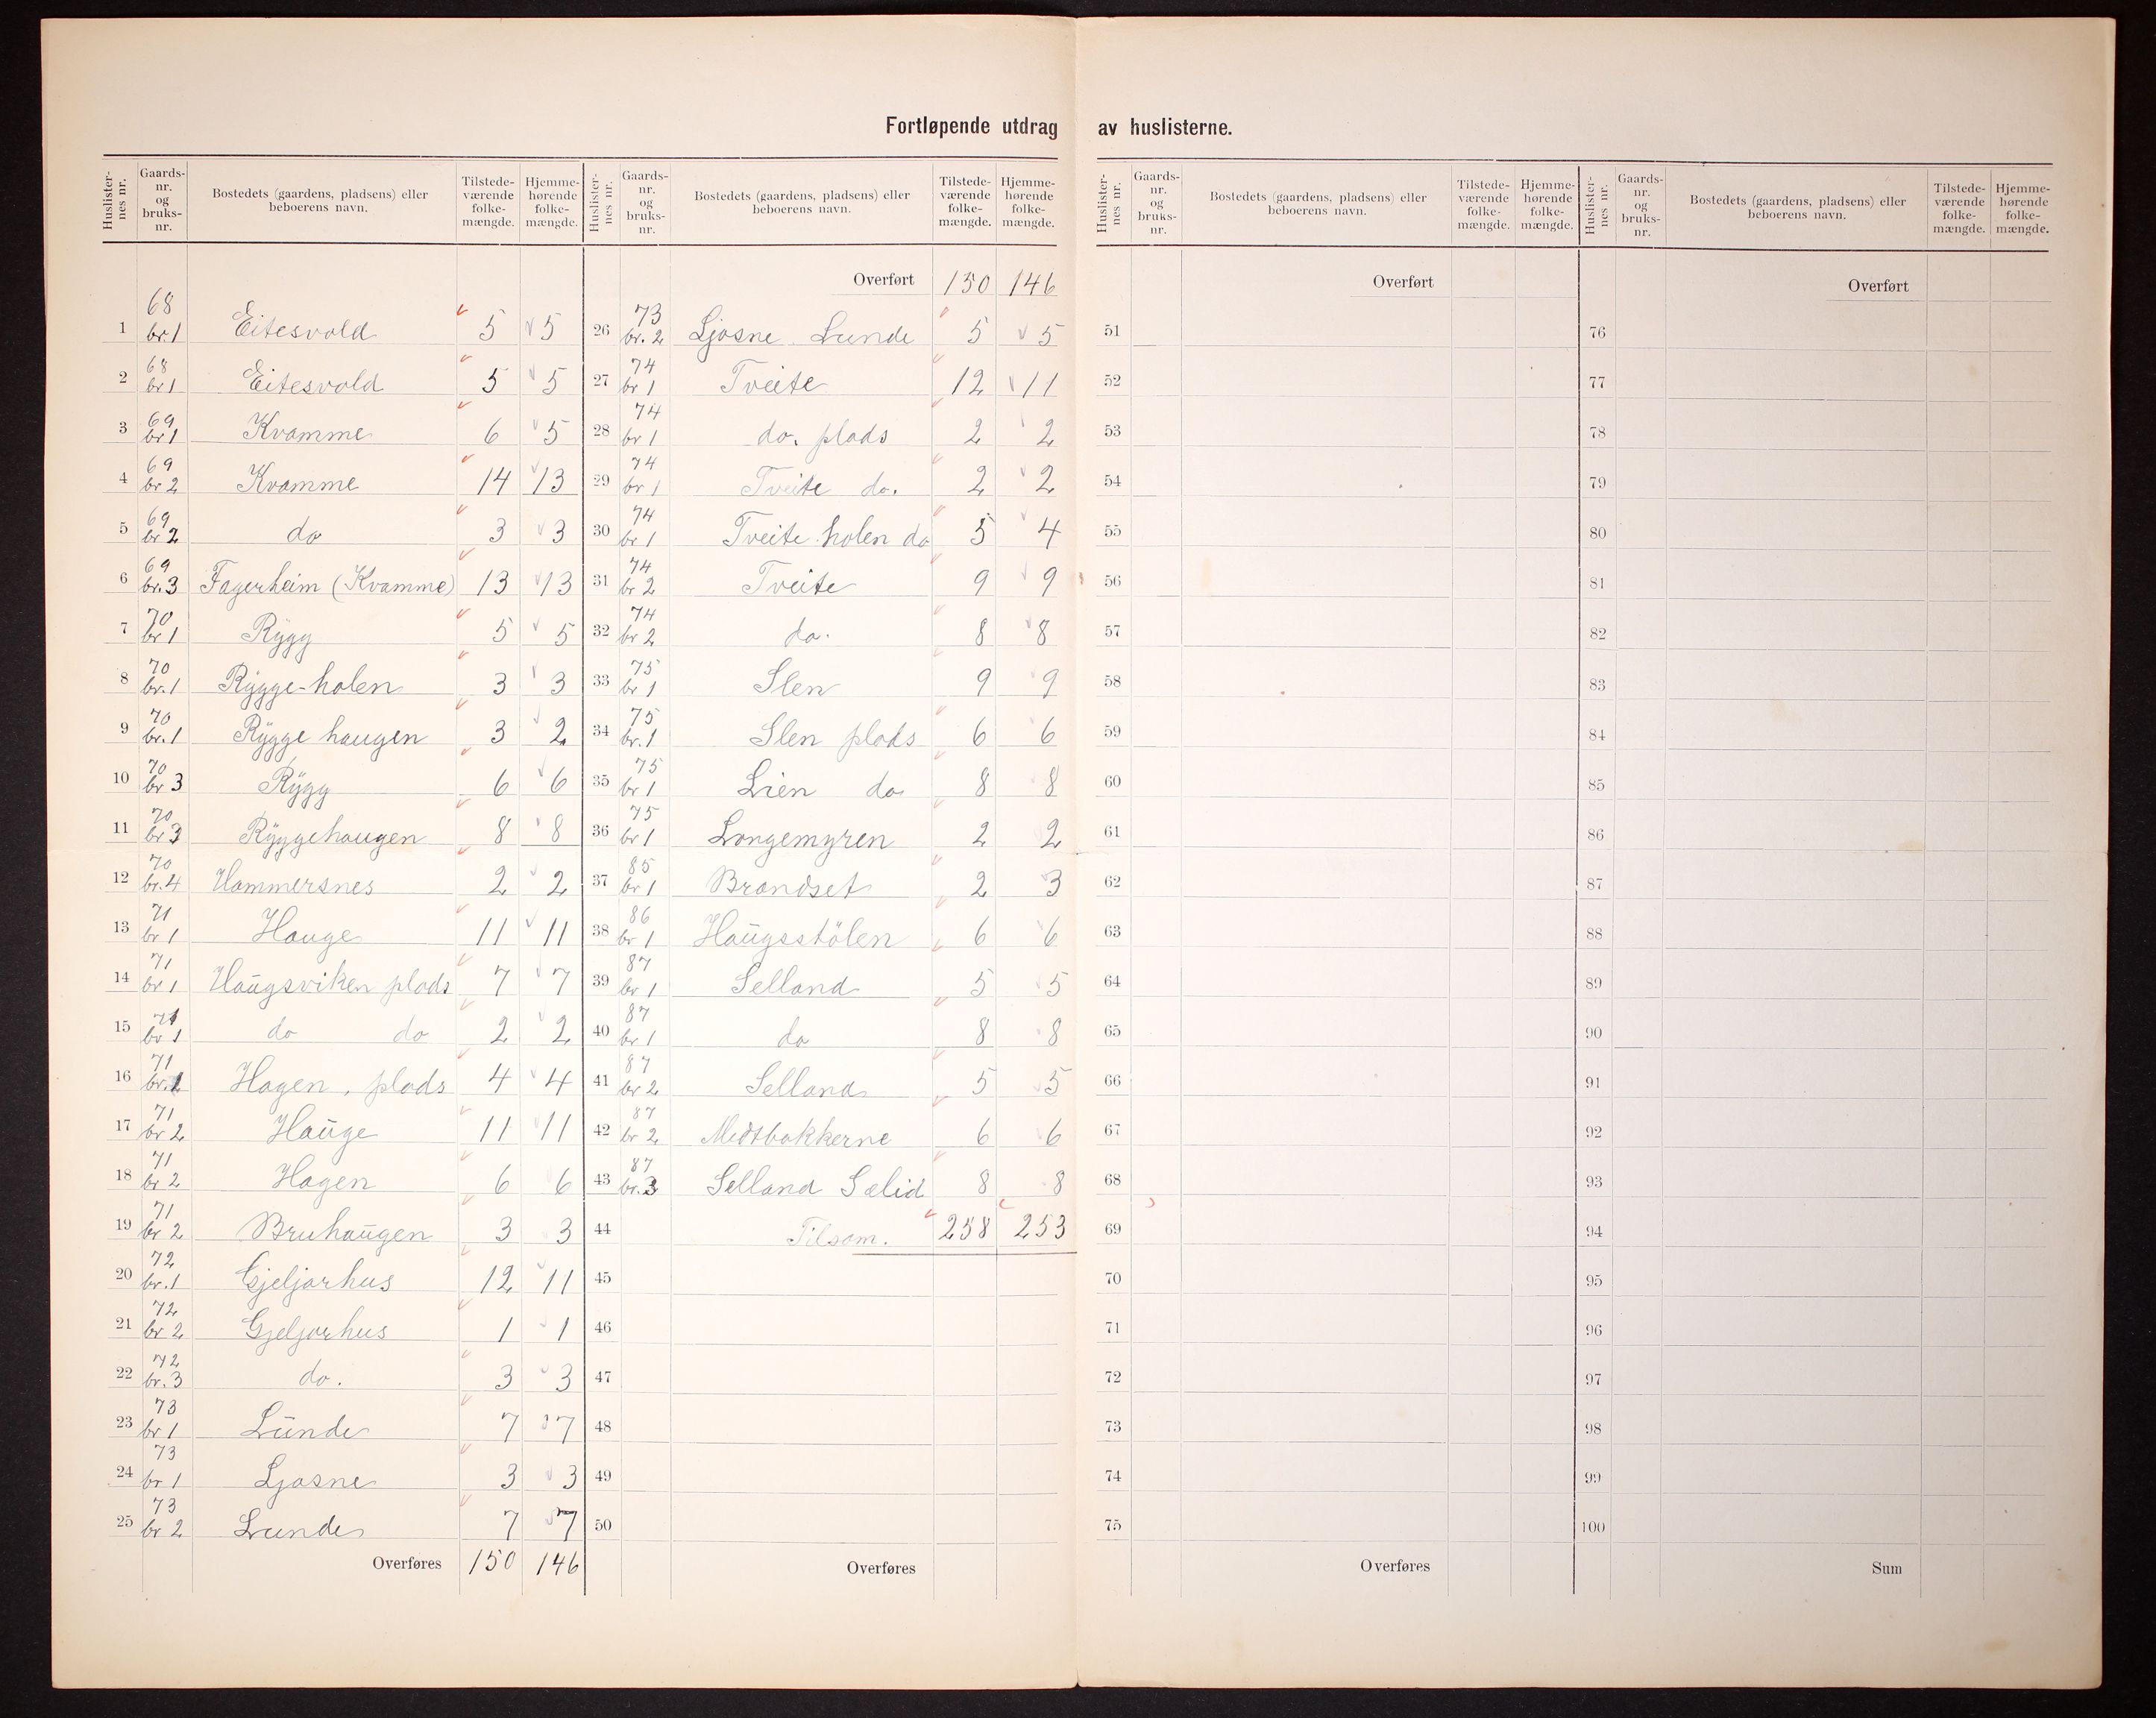 Fortløpende utdrag av huslisterne.
Huslister-nes nr. | Gaards-nr. og bruks-nr. | Bostedets (gaardens, pladsens) eller beboerens navn. | Tilstede-værende folke-mængde. | Hjemme-hørende folke-mængde.
1 | 68 br. 1 | Eitesvold | 5 | 5
2 | 68 br 1 | Eitesvold | 5 | 5
3 | 69 br 1 | Kvamme | 6 | 5
4 | 69 br 2 | Kvamme | 14 | 13
5 | 69 br 2 | do | 3 | 3
6 | 69 br. 3 | Fagerheim (Kvamme) | 13 | 13
7 | 70 br 1 | Rygg | 5 | 5
8 | 70 br. 1 | Rygge-holen | 3 | 3
9 | 70 br. 1 | Rygge haugen | 3 | 2
10 | 70 br 3 | Rygg | 6 | 6
11 | 70 br 3 | Ryggehaugen | 8 | 8
12 | 70 br. 4 | Hammersnes | 2 | 2
13 | 71 br 1 | Hauge | 11 | 11
14 | 71 br 1 | Haugsviken plads | 7 | 7
15 | 71 br 1 | do do | 2 | 2
16 | 71 br. 1 | Hagen, plads | 4 | 4
17 | 71 br 2 | Hauge | 11 | 11
18 | 71 br 2 | Hagen | 6 | 6
19 | 71 br 2 | Bruhaugen | 3 | 3
20 | 72 br. 1 | Gjeljarhus | 12 | 11
21 | 72 br 2 | Gjeljarhus | 1 | 1
22 | 72 br. 3 | do. | 3 | 3
23 | 73 br 1 | Lunde | 7 | 7
24 | 73 br 1 | Ljosne | 3 | 3
25 | 73 br 2 | Lunde | 7 | 7
Overføres | 150 | 146
Huslister-nes nr. | Gaards-nr. og bruks-nr. | Bostedets (gaardens, pladsens) eller beboerens navn. | Tilstede-værende folke-mængde. | Hjemme-hørende folke-mængde.
Overført | 150 | 146
26 | 73 br. 2 | Ljosne Lunde | 5 | 5
27 | 74 br 1 | Tveite | 12 | 11
28 | 74 br 1 | do. plads | 2 | 2
29 | 74 br 1 | Tveite do. | 2 | 2
30 | 74 br 1 | Tveite holen do | 5 | 4
31 | 74 br 2 | Tveite | 9 | 9
32 | 74 br 2 | do. | 8 | 8
33 | 75 br 1 | Slen | 9 | 9
34 | 75 br. 1 | Slen plads | 6 | 6
35 | 75 br 1 | Lien do | 8 | 8
36 | 75 br 1 | Longemyren | 2 | 2
37 | 85 br 1 | Brandset | 2 | 3
38 | 86 br 1 | Haugsstölen | 6 | 6
39 | 87 br 1 | Selland | 5 | 5
40 | 87 br 1 | do | 8 | 8
41 | 87 br 2 | Selland | 5 | 5
42 | 87 br 2 | Medtbakkerne | 6 | 6
43 | 87 br. 3 | Selland Sælid | 8 | 8
44 | Tilsam. | 258 | 253
45
46
47
48
49
50
Overføres
Huslister-nes nr. | Gaards-nr. og bruks-nr. | Bostedets (gaardens, pladsens) eller beboerens navn. | Tilstede-værende folke-mængde. | Hjemme-hørende folke-mængde.
Overført
51
52
53
54
55
56
57
58
59
60
61
62
63
64
65
66
67
68
69
70
71
72
73
74
75
Overføres
Huslister-nes nr. | Gaards-nr. og bruks-nr. | Bostedets (gaardens, pladsens) eller beboerens navn. | Tilstede-værende folke-mængde. | Hjemme-hørende folke-mængde.
Overført
76
77
78
79
80
81
82
83
84
85
86
87
88
89
90
91
92
93
94
95
96
97
98
99
100
Sum